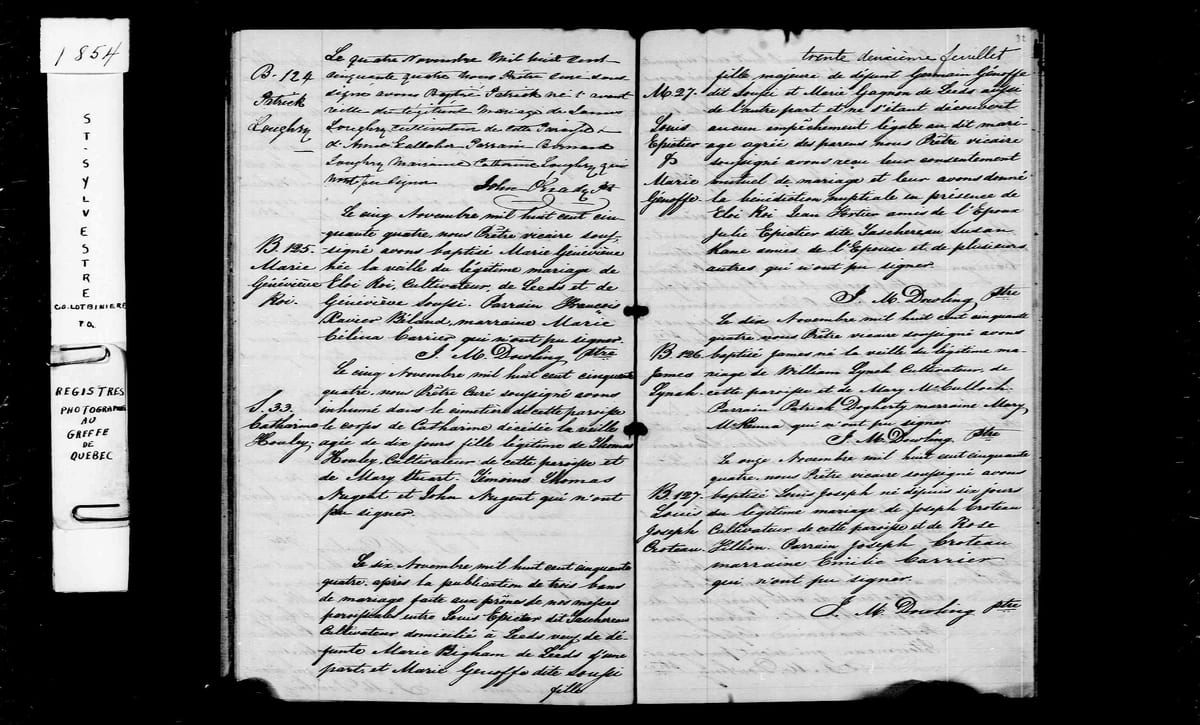 1854
ST-SYLVESTRE
CO. LOTBINIERE
P.Q.
REGISTRES
PHOTOGRAPHIÉS
AU
GREFFE
DE
QUEBEC
B-124
Patrick
Loughry
Le quatre Novembre mil huit cent
cinquante quatre nous Prêtre curé sous
signé avons Baptisé Patrick né l'avant
veille du légitime mariage de James
Loughry cultivateur de cette Paroisse &
d'Anne Gallaher Parrain Bernard
Loughry Marraine Catherine Loughry qui
n'ont pu signer
John
B. 125.
Marie
Géneviève
Roi.
Le cinq Novembre mil huit cent cin-
quante quatre, nous Prêtre vicaire sous-
signé avons baptisé Marie Géneviève
née la veille du légitime mariage de
Eloi Roi, Cultivateur, de Leeds et de
Géneviève Soussi. Parrain François
Xavier Béland, marraine Marie
Célina Carrier qui n'ont pu signer.
J. M. Dowling Ptre
S. 33.
Catharine
Houley,
Le cinq Novembre mil huit cent cinquante
quatre, nous Prêtre Curé soussigné avons
inhumé dans le cimetière de cette paroisse
le corps de Catharine décédée la veille
agée de dix jours fille légitime de Thomas
Houley, Cultivateur de cette paroisse et
de Mary Stuart. Témoins Thomas
Nugent et John Nugent qui n'ont
pu signer.
Le six Novembre mil huit cent cinquante
quatre, après la publication de trois bans
de mariage faite aux prônes de nos messes
paroissiales entre Louis Epictier dit Taschereau
Cultivateur domicilié à Leeds veuf de dé-
funte Marie Bigham de Leeds d'une
part, et Marie Genoffe dite Soussi
fille
32
trente deuxième feuillet
M. 27.
Louis
Epictier
&
Marie
Génoffe
fille majeure de défunt Germain Génoffe
dit Soussi et Marie Gagnon de Leeds aussi
de l'autre part et ne s'étant découvert
aucun empêchement légale au dit mari-
age agrée des parens nous Prêtre vicaire
soussigné avons reçu leur consentement
mutuel de mariage et leur avons donné
la bénédiction nuptiale en présence de
Eloi Roi Jean Fortier amis de l'Epoux
Julie Epictier dite Taschereau Susan
Kane amies de l'Epouse et de plusieurs
autres qui n'ont pu signer.
J. M. Dowling Ptre
B. 126
James
Lynch
Le dix Novembre mil huit cent cinquante
quatre nous Prêtre vicaire soussigné avons
baptisé James né la veille du légitime ma-
riage de William Lynch Cultivateur, de
cette paroisse et de Mary McCulloch.
Parrain Patrick Dogherty marraine Mary
McKenna qui n'ont pu signer
J. M. Dowling Ptre
B. 127.
Louis
Joseph
Croteau.
Le onze Novembre mil huit cent cinquante
quatre, nous Prêtre vicaire soussigné avons
baptisé Louis Joseph né depuis six jours
du légitime mariage de Joseph Croteau
Cultivateur de cette paroisse et de Rose
Fillion. Parrain Joseph Croteau
marraine Emilie Carrier
qui n'ont pu signer.
J. M. Dowling Ptre